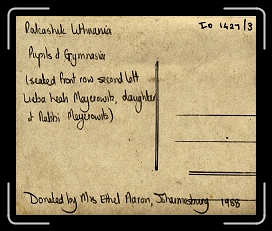 Rakashik Lithuania
ID 1427/3
Pupils of Gymnasia
(seated front row second left
Lieba Leah Meyerowitz, daughter
of Rabbi Meyerowitz)
Donated by Mrs Ethel Aaron, Johannesburg 1988